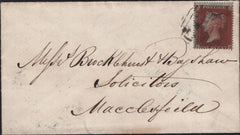 Mess^rs Brocklehurst & Bagshaw
Solicitors
Macclesfield